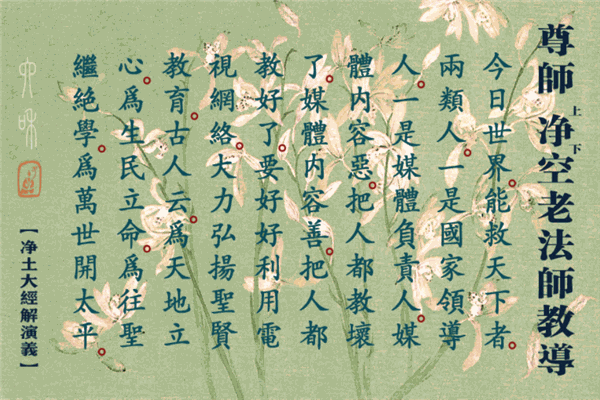 尊師 上净下空老法師教導
今日世界。能救天下者。
兩類人。一是國家領導
人。一是媒體負責人。媒
體内容惡。把人都教壞
了。媒體内容善。把人都
教好了。要好好利用電
視網絡。大力弘揚聖賢
教育。古人云。爲天地立
心。爲生民立命。爲往聖
繼絕學。爲萬世開太平。
【净土大經解演義】